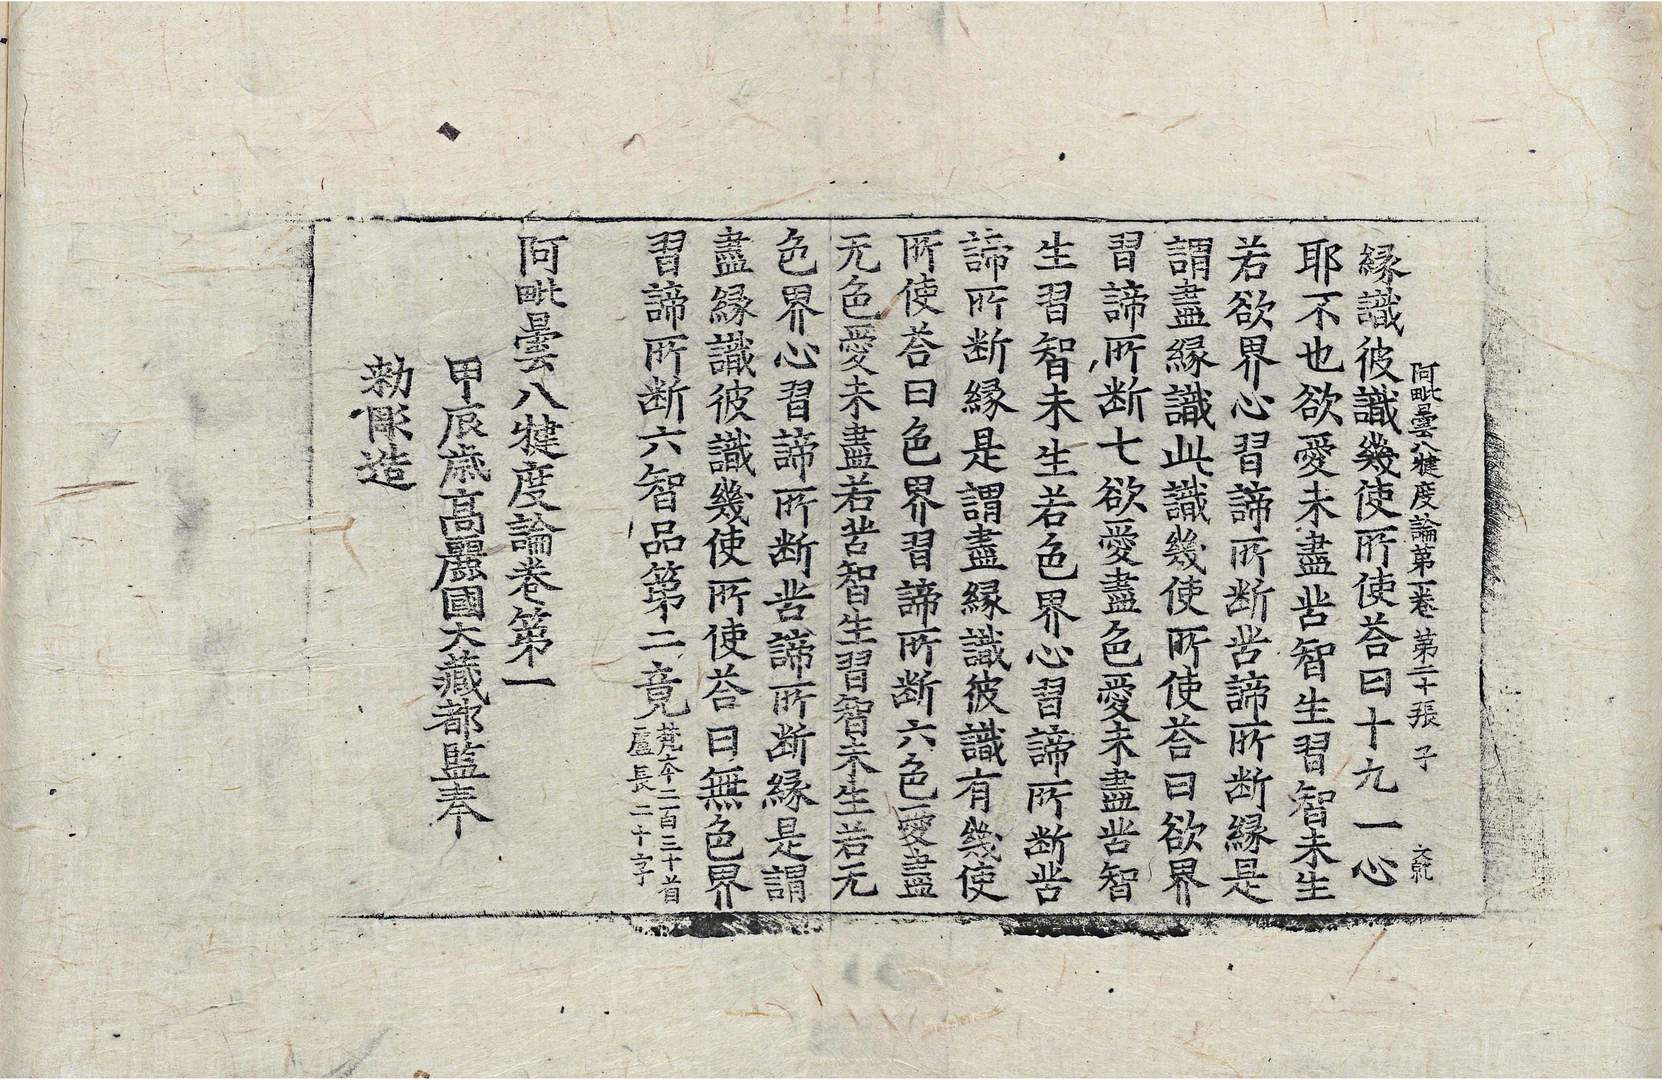 阿毗曇八犍度論第一卷　第二十張　子
緣識彼識幾使所使荅曰十九一心
耶不也欲愛未盡苦智生習智未生
若欲界心習諦所断苦諦所断緣是
謂盡緣識此識幾使所使荅曰欲界
習諦所断七欲愛盡色愛未盡苦智
生習智未生若色界心習諦所断苦
諦所断緣是謂盡緣識彼識有幾使
所使荅曰色界習諦所断六色愛盡
无色愛未盡若苦智生習智未生若无
色界心習諦所断苦諦所断緣是謂
盡緣識彼識幾使所使荅曰無色界
習諦所断六智品第二竟
梵本二百三十首
盧長二十字
阿毗曇八犍度論卷第一
甲辰歲高麗國大藏都監奉
勑彫造